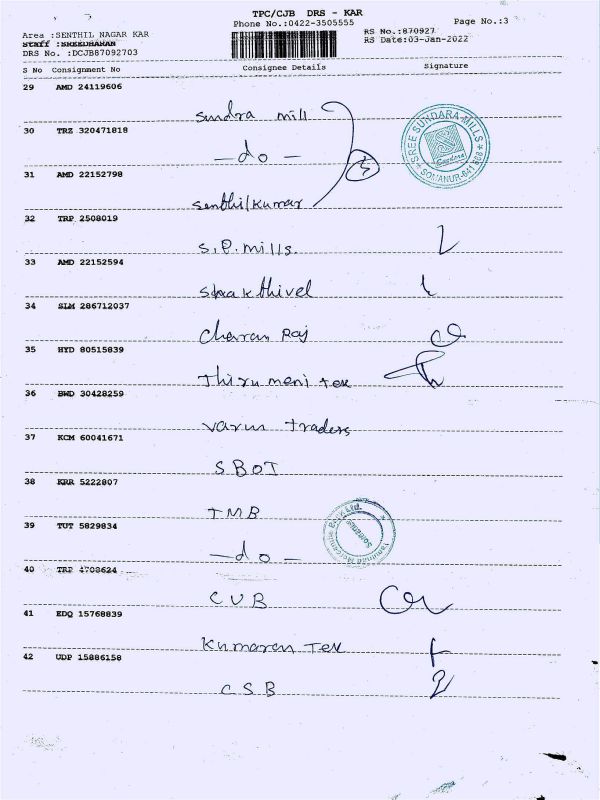 TPC/CJB DRS - KAR
Phone No.:0422-3505555
Page No.:3
Area :SENTHIL NAGAR KAR
RS No.:870927
Staff :SREEDHARAN
RS Date:03-Jan-2022
DRS No. :DCJB87092703
S No Consignment No Consignee Details Signature
29 AMD 24119606
Sundra mill
30 TRZ 320471818
SREE SUNDARA MILLS
SOMANUR-641 668
—do—
3
31 AMD 22152798
Senthilkumar
32 TRP 2508019
S.P. mills.
33 AMD 22152594
Sakthivel
34 SLM 286712037
Charan Raj
35 HYD 80515839
Thirumeni Tex
36 BWD 30428259
Varun traders
37 KCM 60041671
SBOT
38 KRR 5222807
TMB
39 TUT 5829834
Tamilnad Mercantile Bank Ltd.
Somanur
—do—
40 TRP 4708624
CUB
41 EDQ 15768839
Kumaran Tex
42 UDP 15886158
CSB